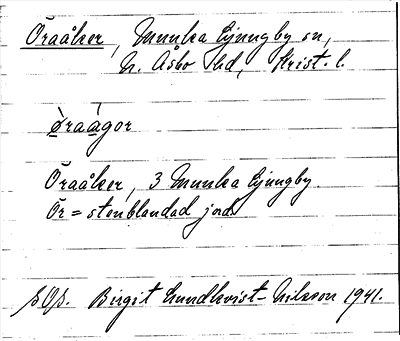 Öraåker, Munka Ljungby sn,
N. Åsbo hd, Krist. l.
òraágor
Öraåker, 3 Munka Ljungby.
Ör = stenblandad jord
Birgit Lundkvist-Nilsson 1941.